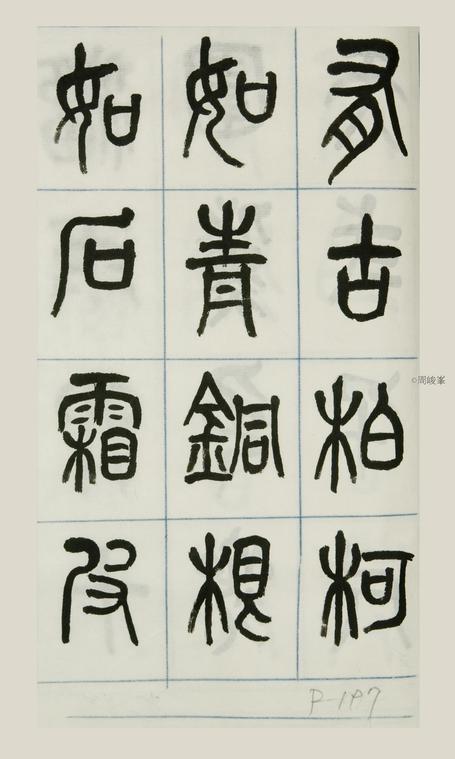 有古柏柯
如青銅根
如石霜皮
©周峻峯
P-197